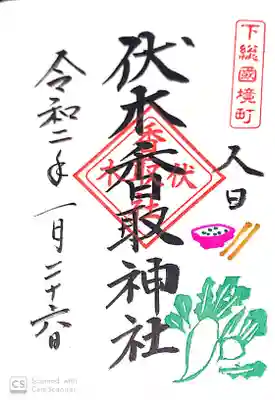 下総國境町
人日
伏木香取神社
令和二年一月二十六日
CS Scanned with
CamScanner